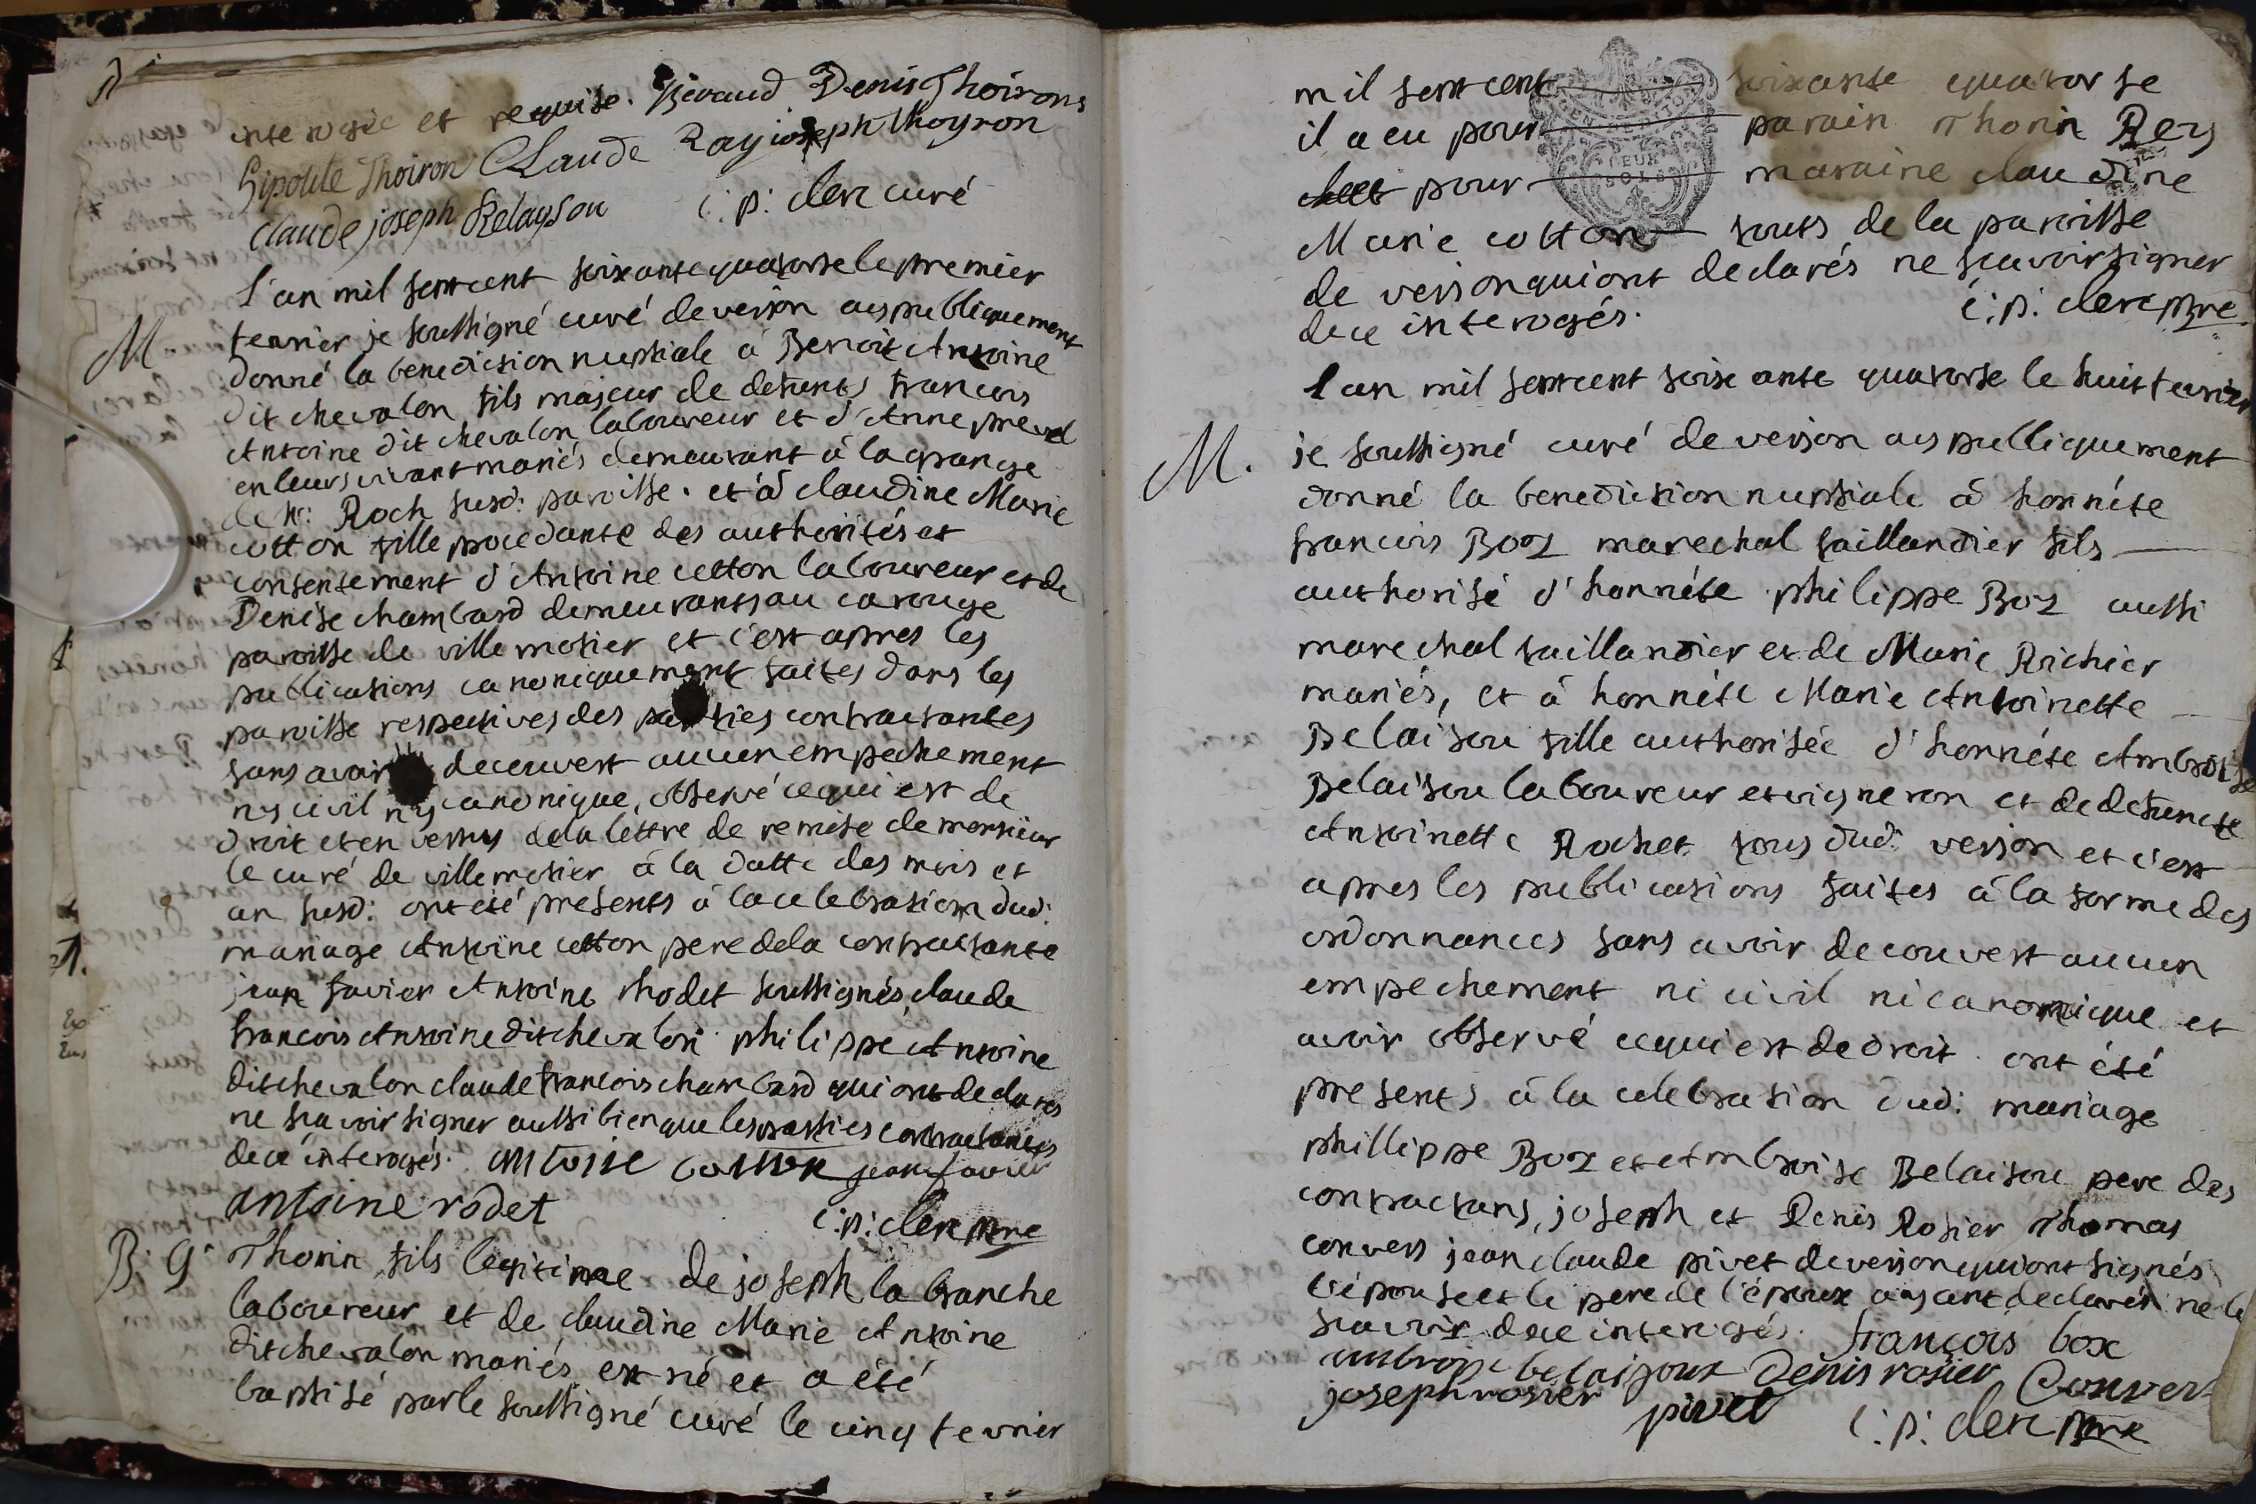 interogée et requise. Bévaud Denis Thoirons
hipolite Thoiron Claude Ray joseph thoyron
claude joseph Relayson c: p: clerc curé
M
l'an mil sept cent soixante quatorse le premier
fevrier je soussigné curé de verjon ay publiquement
donné la benediction nuptiale à Benoit Antoine
dit chevalon fils majeur de defunts francois
Antoine dit chevalon laboureur et d'Anne prevel
en leurs vivant mariés demeurant à la grange
de Mr: Roch susd: paroisse. et à claudine Marie
cotton fille procedante des authorités et
consentement d'Antoine cotton laboureur et de
Denise chambard demeurants au carouge
paroisse de ville motier et c'est apres les
publications canoniquement faites dans les
paroisse respectives des parties contractantes
sans avoir decouvert aucun empechement
ny civil ny canonique, observé ce qui est de
droit et en vertus de la léttre de remise de monsieur
le curé de ville motier à la datte des mois et
an susd: ont été présents à la celebration dud:
mariage Antoine cotton pere de la contractante
jean favier Antoine rhodet soussignés, claude
francois Antoine dit chevalon philippe Antoine
dit chevalon claude francois chambard qui ont declarés
ne scavoir signer aussi bien que les parties contractantes
de ce interogés. antoine cotton jean favier
antoine rodet c: p: clerc ptre
B. G. Thorin fils legitime de joseph la branche
laboureur et de claudine Marie Antoine
dit chevalon mariés est né et a été
baptisé par le soussigné curé le cinq fevrier
mil sept cent soixante quatorse
il a eu pour parain Thorin Rey
et pour maraine claudine
Marie cotton touts de la paroisse
de verjon qui ont declarés ne scavoir signer
de ce interogés. c: p: clerc ptre
l'an mil sept cent soixante quatorse le huit fevrier
M. je soussigné curé de verjon ay publiquement
donné la benediction nuptiale à honnéte
francois Box marechal taillandier fils
authorisé d'honnéte philippe Box aussi
marechal taillandier et de Marie Richier
mariés, et à honnéte Marie Antoinette
Belaisou fille authorisée d'honnéte Ambroise
Belaisou laboureur et vigneron et de defuncte
Antoinette Rochet tous dud: verjon et c'est
apres les publications faites à la forme des
ordonnances sans avoir decouvert aucun
empechement ni civil ni canonique et
avoir observé ce qui est de droit ont été
présents à la celebration dud: mariage
phillippe Box et Ambroise Belaisou pere des
contractans, joseph et Denis Rosier Thomas
convers jean claude pivet de verjon qui ont signés
l'épouse et le pere de l'époux ayant declarés ne le
scavoir de ce interogés. françois box
ambroise belaisoux Denis rosier Convers
joseph rosier pivet c: p: clerc ptre